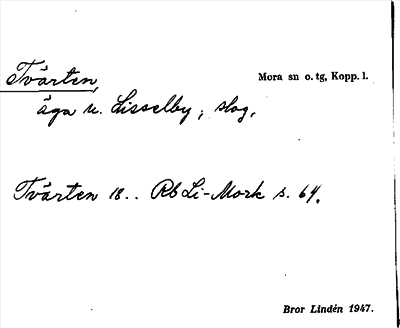 Tvärten,
Mora sn o. tg, Kopp. l.
äga u. Lisselby, slog.
Tvärten 18.. Rb Li-Mork s. 64.
Bror Lindén 1947.